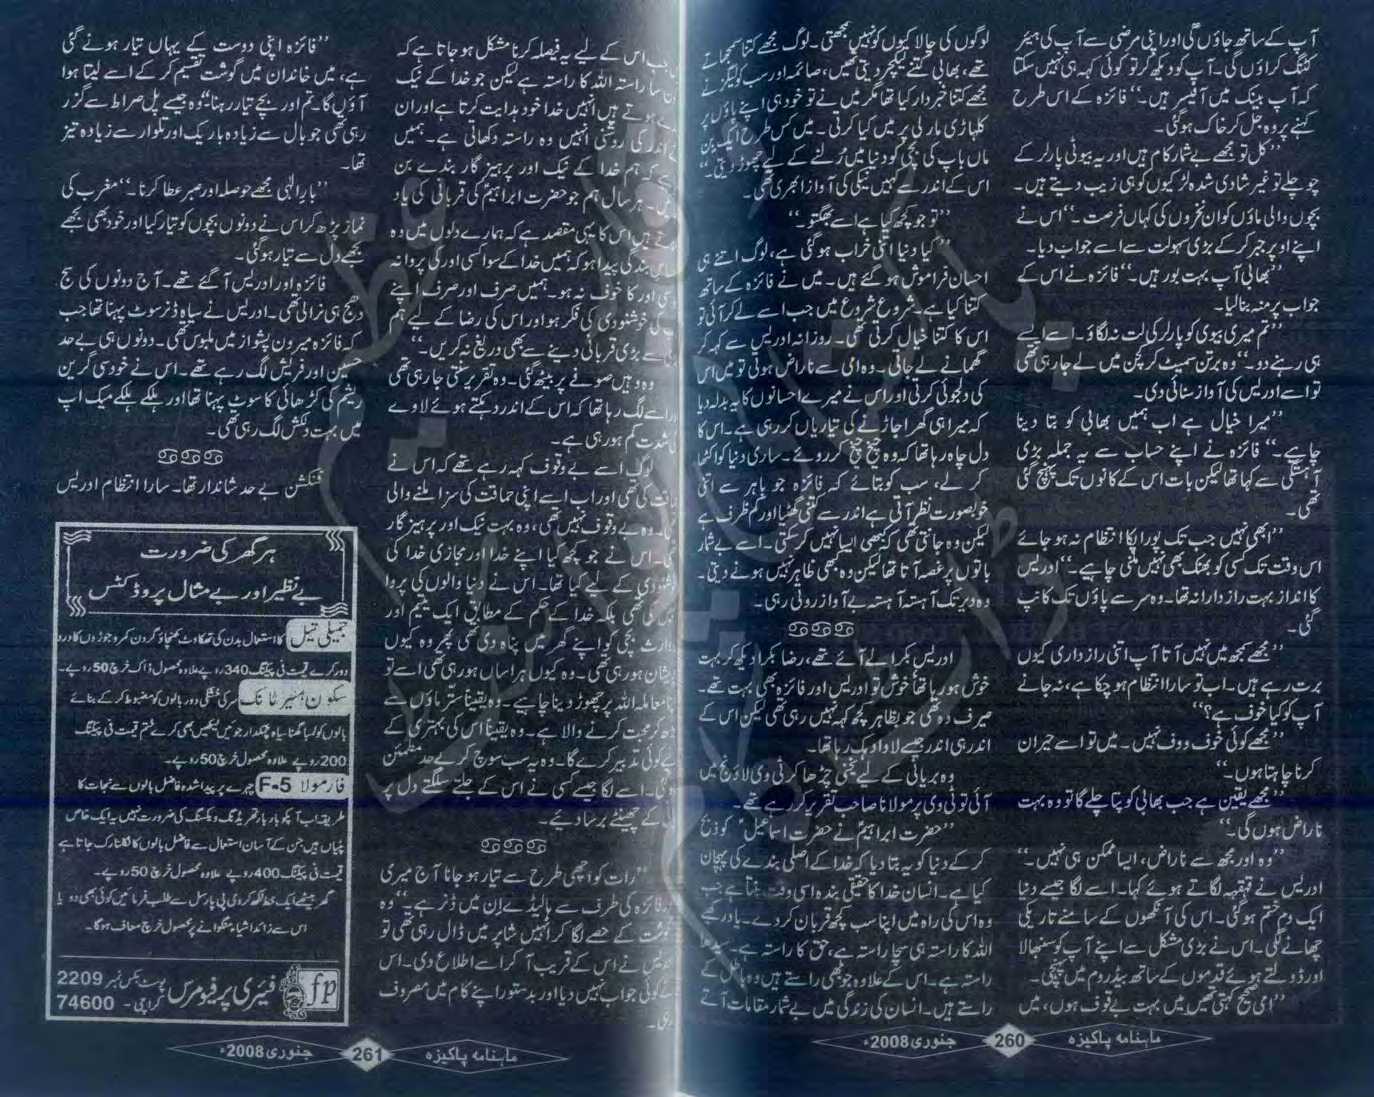 آپ کے ساتھ جاؤں گی اور اپنی مرضی سے آپ کی ہیئر
کٹنگ کراؤں گی۔ آپ کو دیکھ کر تو کوئی کہہ ہی نہیں سکتا
کہ آپ بینک میں آفیسر ہیں۔‘‘ فائزہ کے اس طرح
کہنے پر وہ جل کر خاک ہوگئی۔
’’کل تو مجھے بے شمار کام ہیں اور یہ بیوٹی پارلر کے
چوچلے تو غیر شادی شدہ لڑکیوں کو ہی زیب دیتے ہیں۔
بچوں والی ماؤں کو ان نخروں کی کہاں فرصت۔‘‘ اس نے
اپنے اوپر جبر کر کے بڑی سہولت سے اسے جواب دیا۔
’’بھابی آپ بہت بور ہیں۔‘‘ فائزہ نے اس کے
جواب پر منہ بنا لیا۔
’’تم میری بیوی کو پارلر کی لت نہ لگاؤ۔ اسے ایسے
ہی رہنے دو۔‘‘ وہ برتن سمیٹ کر کچن میں لے جا رہی تھی
تو اسے ادریس کی آواز سنائی دی۔
’’میرا خیال ہے اب ہمیں بھابی کو بتا دینا
چاہیے۔‘‘ فائزہ نے اپنے حساب سے یہ جملہ بڑی
آہستگی سے کہا تھا لیکن بات اس کے کانوں تک پہنچ گئی
تھی۔
’’ابھی نہیں جب تک پورا پکا انتظام نہ ہو جائے
اس وقت تک کسی کو بھنک بھی نہیں ملنی چاہیے۔‘‘ ادریس
کا انداز بہت رازدارانہ تھا۔ وہ سر سے پاؤں تک کانپ
گئی۔
’’مجھے سمجھ میں نہیں آتا آپ اتنی رازداری کیوں
برت رہے ہیں۔ اب تو سارا انتظام ہو چکا ہے، نہ جانے
آپ کو کیا خوف ہے؟‘‘
’’مجھے کوئی خوف ووف نہیں۔ میں تو اسے حیران
کرنا چاہتا ہوں۔‘‘
’’مجھے یقین ہے جب بھابی کو پتا چلے گا تو وہ بہت
ناراض ہوں گی۔‘‘
’’وہ اور مجھ سے ناراض، ایسا ممکن ہی نہیں۔‘‘
ادریس نے قہقہہ لگاتے ہوئے کہا۔ اسے لگا جیسے دنیا
ایک دم ختم ہوگئی۔ اس کی آنکھوں کے سامنے تاریکی
چھانے لگی۔ اس نے بڑی مشکل سے اپنے آپ کو سنبھالا
اور ڈولتے ہوئے قدموں کے ساتھ بیڈروم میں پہنچی۔
’’امی صحیح کہتی تھیں میں بہت بے وقوف ہوں، میں
لوگوں کی چالاکیوں کو نہیں سمجھتی۔ لوگ مجھے کتنا سمجھاتے
تھے، بھابی کتنے لیکچر دیتی تھیں، صائمہ اور سب کولیگز نے
مجھے کتنا خبردار کیا تھا مگر میں نے تو خود ہی اپنے پاؤں پر
کلہاڑی مار لی پر میں کیا کرتی۔ میں کس طرح ایک بن
ماں باپ کی بچی کو دنیا میں رُلنے کے لیے چھوڑ دیتی۔‘‘
اس کے اندر سے کہیں نیکی کی آواز ابھری تھی۔
’’تو جو کچھ کیا ہے اسے بھگتو۔‘‘
’’کیا دنیا اتنی خراب ہوگئی ہے، لوگ اتنے ہی
احسان فراموش ہو گئے ہیں۔ میں نے فائزہ کے ساتھ
کتنا کیا ہے۔ شروع شروع میں جب اسے لے کر آئی تو
اس کا کتنا خیال کرتی تھی۔ روزانہ ادریس سے کہہ کر
گھمانے لے جاتی۔ وہ امی سے ناراض ہوتی تو میں اس
کی دلجوئی کرتی اور اس نے میرے احسانوں کا یہ بدلہ دیا
کہ میرا ہی گھر اجاڑنے کی تیاریاں کر رہی ہے۔ اس کا
دل چاہ رہا تھا کہ وہ چیخ چیخ کر روئے۔ ساری دنیا کو اکٹھا
کر لے، سب کو بتائے کہ فائزہ جو باہر سے اتنی
خوبصورت نظر آتی ہے اندر سے کتنی گھٹیا اور کم ظرف ہے
لیکن وہ جانتی تھی کہ کبھی ایسا نہیں کر سکتی۔ اسے بے شمار
باتوں پر غصہ آتا تھا لیکن وہ کبھی ظاہر نہیں ہونے دیتی۔
وہ دیر تک آہستہ آہستہ بے آواز روتی رہی۔
ادریس بکرا لے آئے تھے، رضا بکرا دیکھ کر بہت
خوش ہو رہا تھا خوش تو ادریس اور فائزہ بھی بہت تھے۔
صرف وہ تھی جو بظاہر کچھ کہہ نہیں رہی تھی لیکن اس کے
اندر ہی اندر جیسے لاوا دہک رہا تھا۔
وہ بریانی کے لیے یخنی چڑھا کر ٹی وی لاؤنج میں
آئی تو ٹی وی پر مولانا صاحب تقریر کر رہے تھے۔
’’حضرت ابراہیمؑ نے حضرت اسماعیلؑ کو ذبح
کر کے دنیا کو یہ بتا دیا کہ خدا کے اصلی بندے کی پہچان
کیا ہے۔ انسان خدا کا حقیقی بندہ اسی وقت بنتا ہے جب
وہ اس کی راہ میں اپنا سب کچھ قربان کر دے۔ یاد رکھیے
اللہ کا راستہ ہی سچا راستہ ہے، حق کا راستہ ہے۔ سیدھا
راستہ ہے۔ اس کے علاوہ جو بھی راستے ہیں وہ باطل کے
راستے ہیں۔ انسان کی زندگی میں بے شمار مقامات آتے
ماہنامہ پاکیزہ 260 جنوری 2008ء
جب اس کے لیے یہ فیصلہ کرنا مشکل ہو جاتا ہے کہ
کون سا راستہ اللہ کا راستہ ہے لیکن جو خدا کے نیک
بندے ہوتے ہیں انہیں خدا خود ہدایت کرتا ہے اور ان
کے اندر کی روشنی انہیں وہ راستہ دکھاتی ہے۔ ہمیں
ہے کہ ہم خدا کے نیک اور پرہیزگار بندے بن
جائیں۔ ہر سال ہم جو حضرت ابراہیمؑ کی قربانی کی یاد
ہیں اس کا یہی مقصد ہے کہ ہمارے دلوں میں وہ
احساس بندگی پیدا ہو کہ ہمیں خدا کے سوا کسی اور کی پروا نہ
کسی اور کا خوف نہ ہو۔ ہمیں صرف اور صرف اپنے
کی خوشنودی کی فکر ہو اور اس کی رضا کے لیے ہم
بڑی سے بڑی قربانی دینے سے بھی دریغ نہ کریں۔‘‘
وہ وہیں صوفے پر بیٹھ گئی۔ وہ تقریر سنتی جا رہی تھی
اور اسے لگ رہا تھا کہ اس کے اندر دہکتے ہوئے لاوے
کی شدت کم ہو رہی ہے۔
لوگ اسے بے وقوف کہہ رہے تھے کہ اس نے
حماقت کی تھی اور اب اسے اپنی حماقت کی سزا ملنے والی
تھی۔ وہ بے وقوف نہیں تھی، وہ بہت نیک اور پرہیزگار
تھی۔ اس نے جو کچھ کیا اپنے خدا اور مجازی خدا کی
خوشنودی کے لیے کیا تھا۔ اس نے دنیا والوں کی پروا
نہیں کی تھی بلکہ خدا کے حکم کے مطابق ایک یتیم اور
لاوارث بچی کو اپنے گھر میں پناہ دی تھی پھر وہ کیوں
پریشان ہو رہی تھی۔ وہ کیوں ہراساں ہو رہی تھی اسے تو
اپنا معاملہ اللہ پر چھوڑ دینا چاہیے۔ وہ یقیناً ستر ماؤں سے
بڑھ کر محبت کرنے والا ہے۔ وہ یقیناً اس کی بہتری کے
لیے کوئی تدبیر کرے گا۔ وہ یہ سب سوچ کر بے حد مطمئن
ہوگئی۔ اسے لگا جیسے کسی نے اس کے جلتے سلگتے دل پر
پانی کے چھینٹے برسا دیے۔
’’رات کو اچھی طرح سے تیار ہو جانا آج میری
اور فائزہ کی طرف سے ہالیڈے اِن میں ڈنر ہے۔‘‘ وہ
گوشت کے حصے لگا کر انہیں شاپر میں ڈال رہی تھی تو
ادریس نے اس کے قریب آ کر اسے اطلاع دی۔ اس
نے کوئی جواب نہیں دیا اور بدستور اپنے کام میں مصروف
رہی۔
’’فائزہ اپنی دوست کے یہاں تیار ہونے گئی
ہے، میں خاندان میں گوشت تقسیم کر کے اسے لیتا ہوا
آؤں گا۔ تم اور بچے تیار رہنا۔‘‘ وہ جیسے پل صراط سے گزر
رہی تھی جو بال سے زیادہ باریک اور تلوار سے زیادہ تیز
تھا۔
’’بارِ الٰہی مجھے حوصلہ اور صبر عطا کرنا۔‘‘ مغرب کی
نماز پڑھ کر اس نے دونوں بچوں کو تیار کیا اور خود بھی بجھے
بجھے دل سے تیار ہوگئی۔
فائزہ اور ادریس آ گئے تھے۔ آج دونوں کی سج
دھج ہی نرالی تھی۔ ادریس نے سیاہ ڈنر سوٹ پہنا تھا جب
کہ فائزہ میرون پشواز میں ملبوس تھی۔ دونوں ہی بے حد
حسین اور فریش لگ رہے تھے۔ اس نے خود سی گرین
ریشم کی کڑھائی کا سوٹ پہنا تھا اور ہلکے ہلکے میک اپ
میں بہت دلکش لگ رہی تھی۔
فنکشن بے حد شاندار تھا۔ سارا انتظام ادریس
ہر گھر کی ضرورت
بے نظیر اور بے مثال پروڈکٹس
چمبیلی تیل کا استعمال بدن کی تھکاوٹ کھنچاؤ گردن کمر و جوڑوں کا درد
دور کرے قیمت فی پیکنگ 340 روپے علاوہ محصول ڈاک خرچ 50 روپے۔
سکون ہیئر ٹانک سر کی خشکی دور بالوں کو مضبوط کر کے بنائے
بالوں کو لمبا گھنا سیاہ چمکدار جوئیں لیکھیں بھی کرے ختم قیمت فی پیکنگ
200 روپے علاوہ محصول خرچ 50 روپے۔
فارمولا F-5 چہرے پر پیدا شدہ فاضل بالوں سے نجات کا
طریقہ اب آپکو بار بار تھریڈنگ ویکسنگ کی ضرورت نہیں یہ ایک خاص
پتیاں ہیں جن کے آسان استعمال سے فاضل بالوں کا نکلنا رک جاتا ہے
قیمت فی پیکنگ 400 روپے علاوہ محصول خرچ 50 روپے۔
گھر بیٹھے ایک خط لکھ کر وی پی پارسل سے طلب فرمائیں کوئی بھی دو یا
اس سے زائد اشیاء منگوانے پر محصول خرچ معاف ہوگا۔
fp فیئری پرفیومرس پوسٹ بکس نمبر 2209
کراچی - 74600
ماہنامہ پاکیزہ 261 جنوری 2008ء